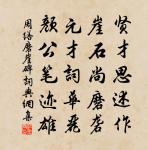 贤才思迷作
崖石尚磨砻
元才词华
颜公笔迹雄
周缮磨崖碑 词典网集